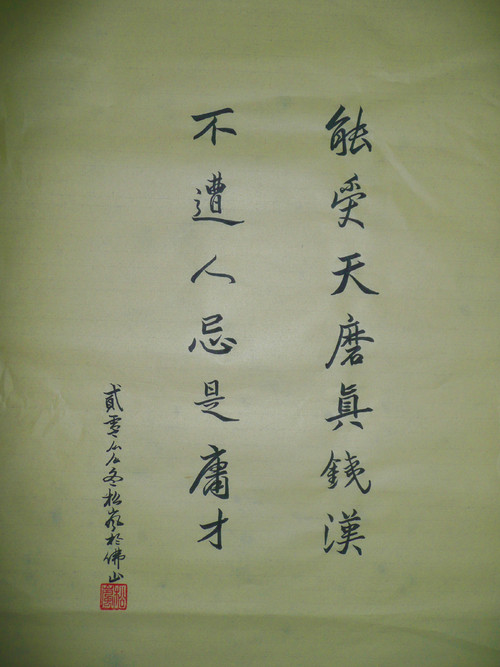 能受天磨真銕漢
不遭人忌是庸才
貳零冬松於佛山